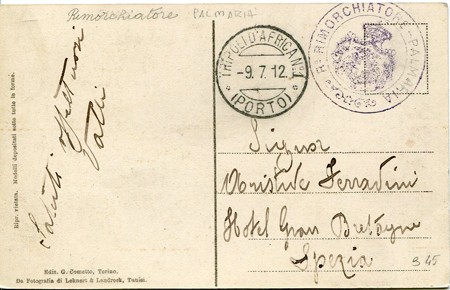 Rimorchiatore PALMARIA
TRIPOLI D'AFRICA N.1
-9.7.12
(PORTO)
Rº RIMORCHIATORE - PALMARIA
Ripr. vietata. Modelli depositati sotto tutte le forme.
Saluti affettuosi
Signor
Aristide Ferradini
Hotel Gran Bretagne
Spezia
B 45
Ediz. G. Cometto, Torino.
Da Fotografia di Lehnert & Landrock, Tunisi.